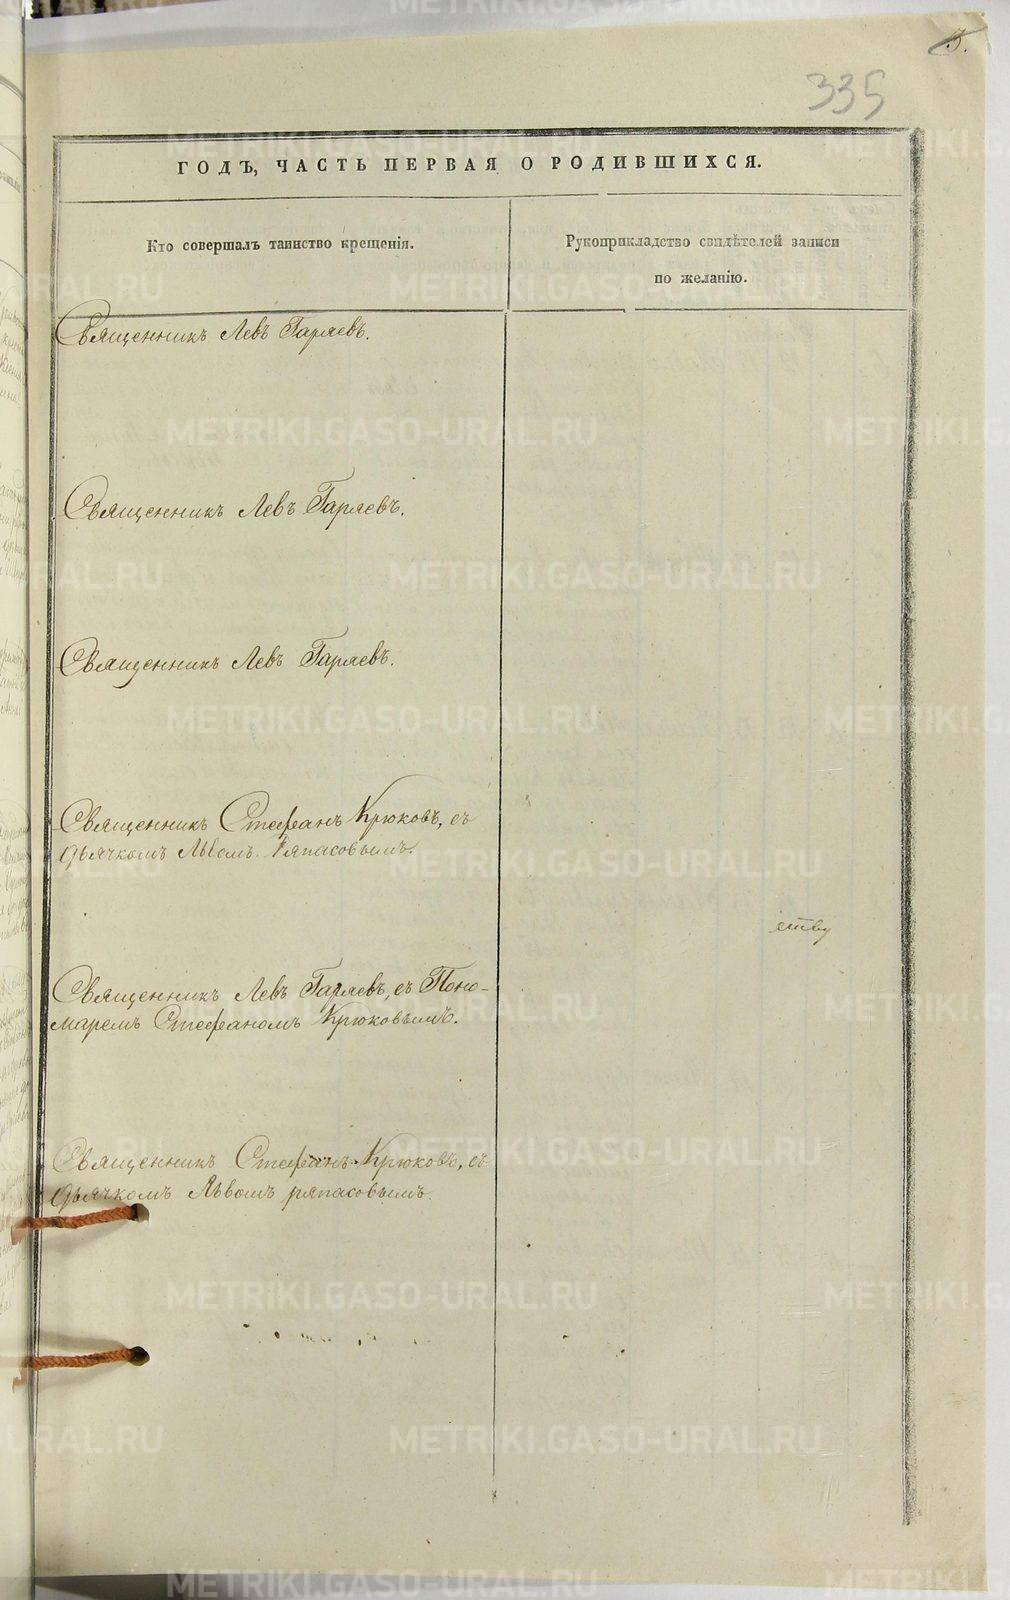 3.
335
ГОДЪ, ЧАСТЬ ПЕРВАЯ О РОДИВШИХСЯ.
Кто совершалъ таинство крещенія.
Рукоприкладство свидѣтелей записи
по желанію.
Священникъ Левъ Гаряевъ.
Священникъ Левъ Гаряевъ.
Священникъ Левъ Гаряевъ.
Священникъ Стефанъ Крюковъ, съ
дьячкомъ Львомъ Ряпасовымъ.
ству
Священникъ Левъ Гаряевъ, съ Поно-
маремъ Стефаномъ Крюковымъ.
Священникъ Стефанъ Крюковъ, съ
дьячкомъ Львомъ ряпасовымъ.
METRIKI.GASO-URAL.RU